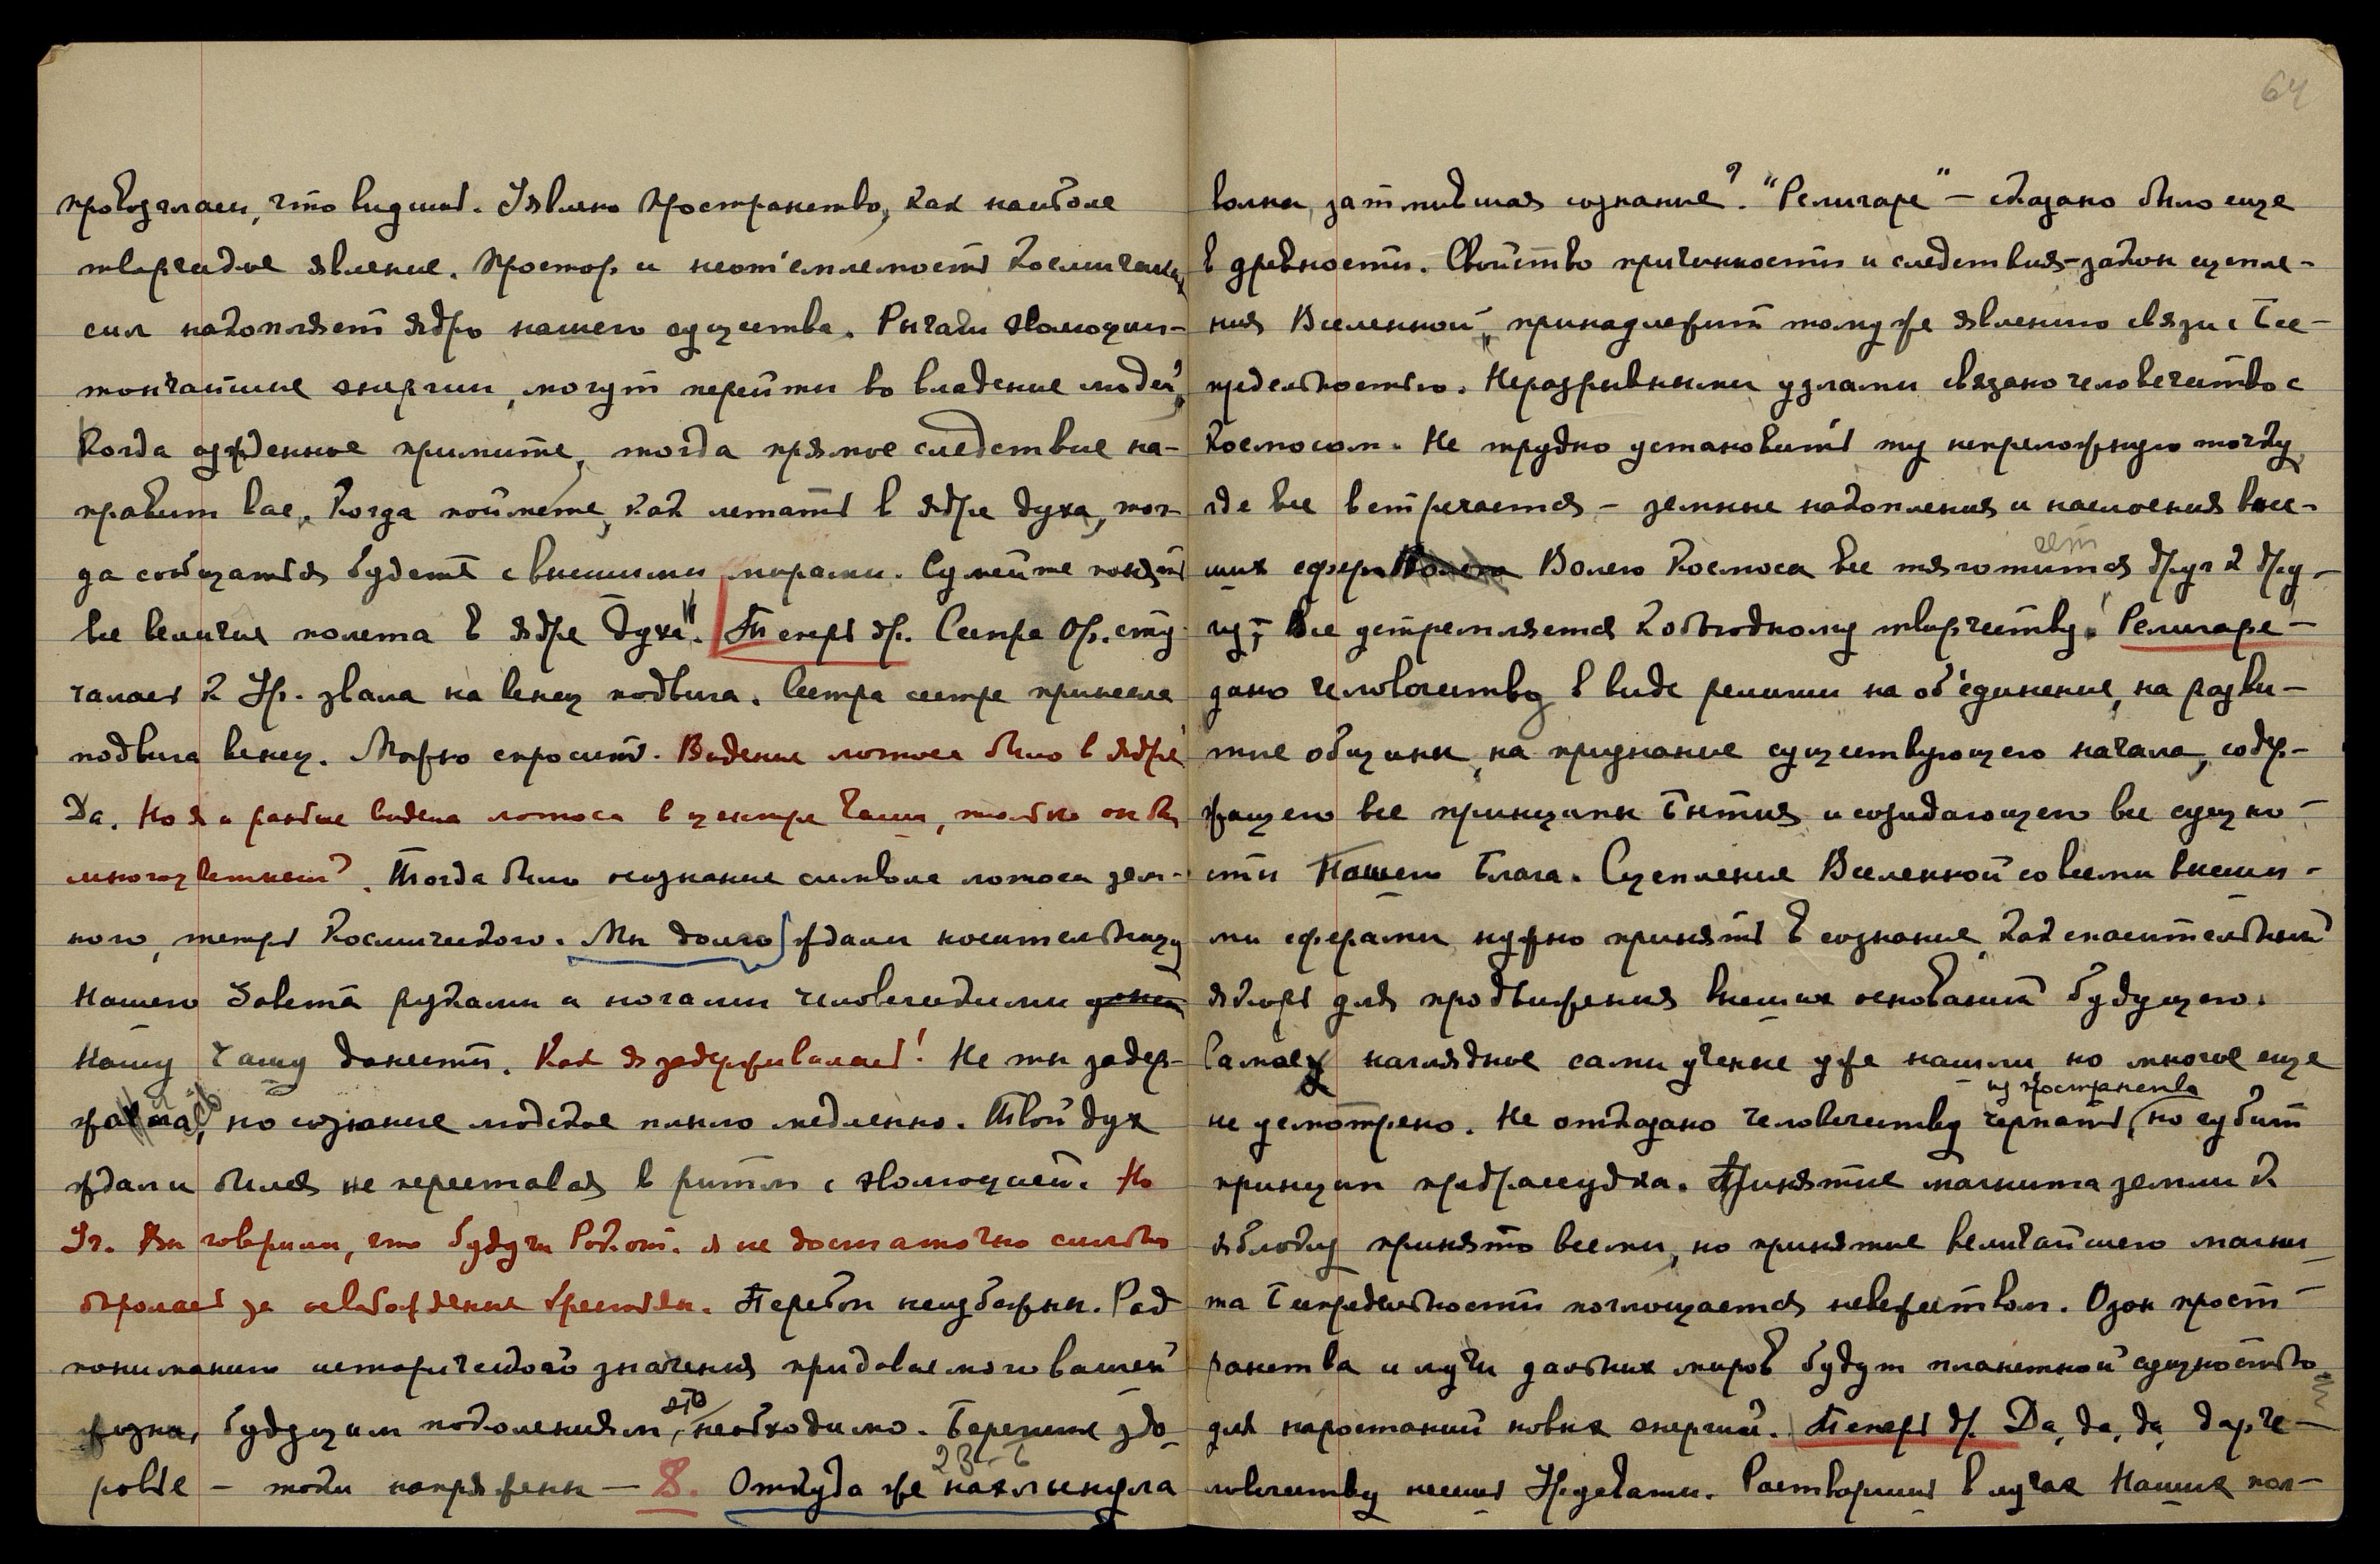 провозгласи, что видишь. Явлено пространство, как наиболее
творческое явление. Простор и неот'емлемость Космических
сил накопляет ядро нашего существа. Рычаги эволюции –
тончайшие энергии, могут перейти во владение людей,
Когда суждённое примите, тогда прямое следствие на-
правит вас. Когда поймёте, как летать в ядре духа, тог-
да сообщаться будете с высшими мирами. Сумейте понять
все величие полета в ядре духа". Теперь др. Сестра Ор. сту-
чалась к Ур. звала на венец подвига. Сестра сестре принесла
подвига венец. Можно спросить. Видение лотоса было в ядре?
Да. Но я и раньше видела лотоса в центре Чаши, только он был
многоцветный? Тогда было осознание символа лотоса зем-
ного, теперь Космического. Мы долго ждали носительницу
Нашего Завета руками и ногами человеческими
Нашу Чашу донести. Как я задерживалась! Не ты задер-
жала, но сознание людское плыло медленно. Твой дух
ждал и бился не переставая в ритм с эволюцией. Но
Вы говорили, что будучи я не достаточно сильно
боролась за освобождение крестьян. Перебои неизбежны. Рад
пониманию исторического значения придаваемого вашей
жизни, будущим поколениям, это необходимо. Берегите здо-
ровье – токи напряжены – 8. Откуда же нахлынула
23-6
64
волна, затмившая сознание? "Религаре" – сказано было еще
в древности. Свойство причинности и следствия – закон сцепле-
ния Вселенной, принадлежит тому же явлению связи с Бес-
предельностью. Неразрывными узлами связано человечество с
Космосом. Не трудно установить ту непреложную точку
где все встречается – земные накопления и наслоения выс-
ших сфер. Волею Космоса все тяготится друг к дру-
ет
гу; Все устремляется к обоюдному творчеству. Религаре –
дано человечеству в виде религии на об'единение, на разви-
тие общины, на признание существующего начала, содер-
жащего все принципы Бытия и созидающего все сущно-
сти Нашего Блага. Сцепление Вселенной со всеми высши-
ми сферами нужно принять в сознание, как спасительный
якорь для продвижения высших оснований будущего.
Самое наглядное сами ученые уже нашли, но многое еще
из пространства
не усмотрено. Не отказано человечеству черпать, но губит
принцип предрассудка. Принятие магнита земли к
яблоку принято всеми, но принятие величайшего магни-
та Беспредельности поглощается невежеством. Озон прост-
ранства и лучи дальних миров будут планетной сущностью
для нарастаний новых энергий. Теперь др. Да, да, да, дар че-
ловечеству несет Урусвати. Растворишь в лучах Наших пол-